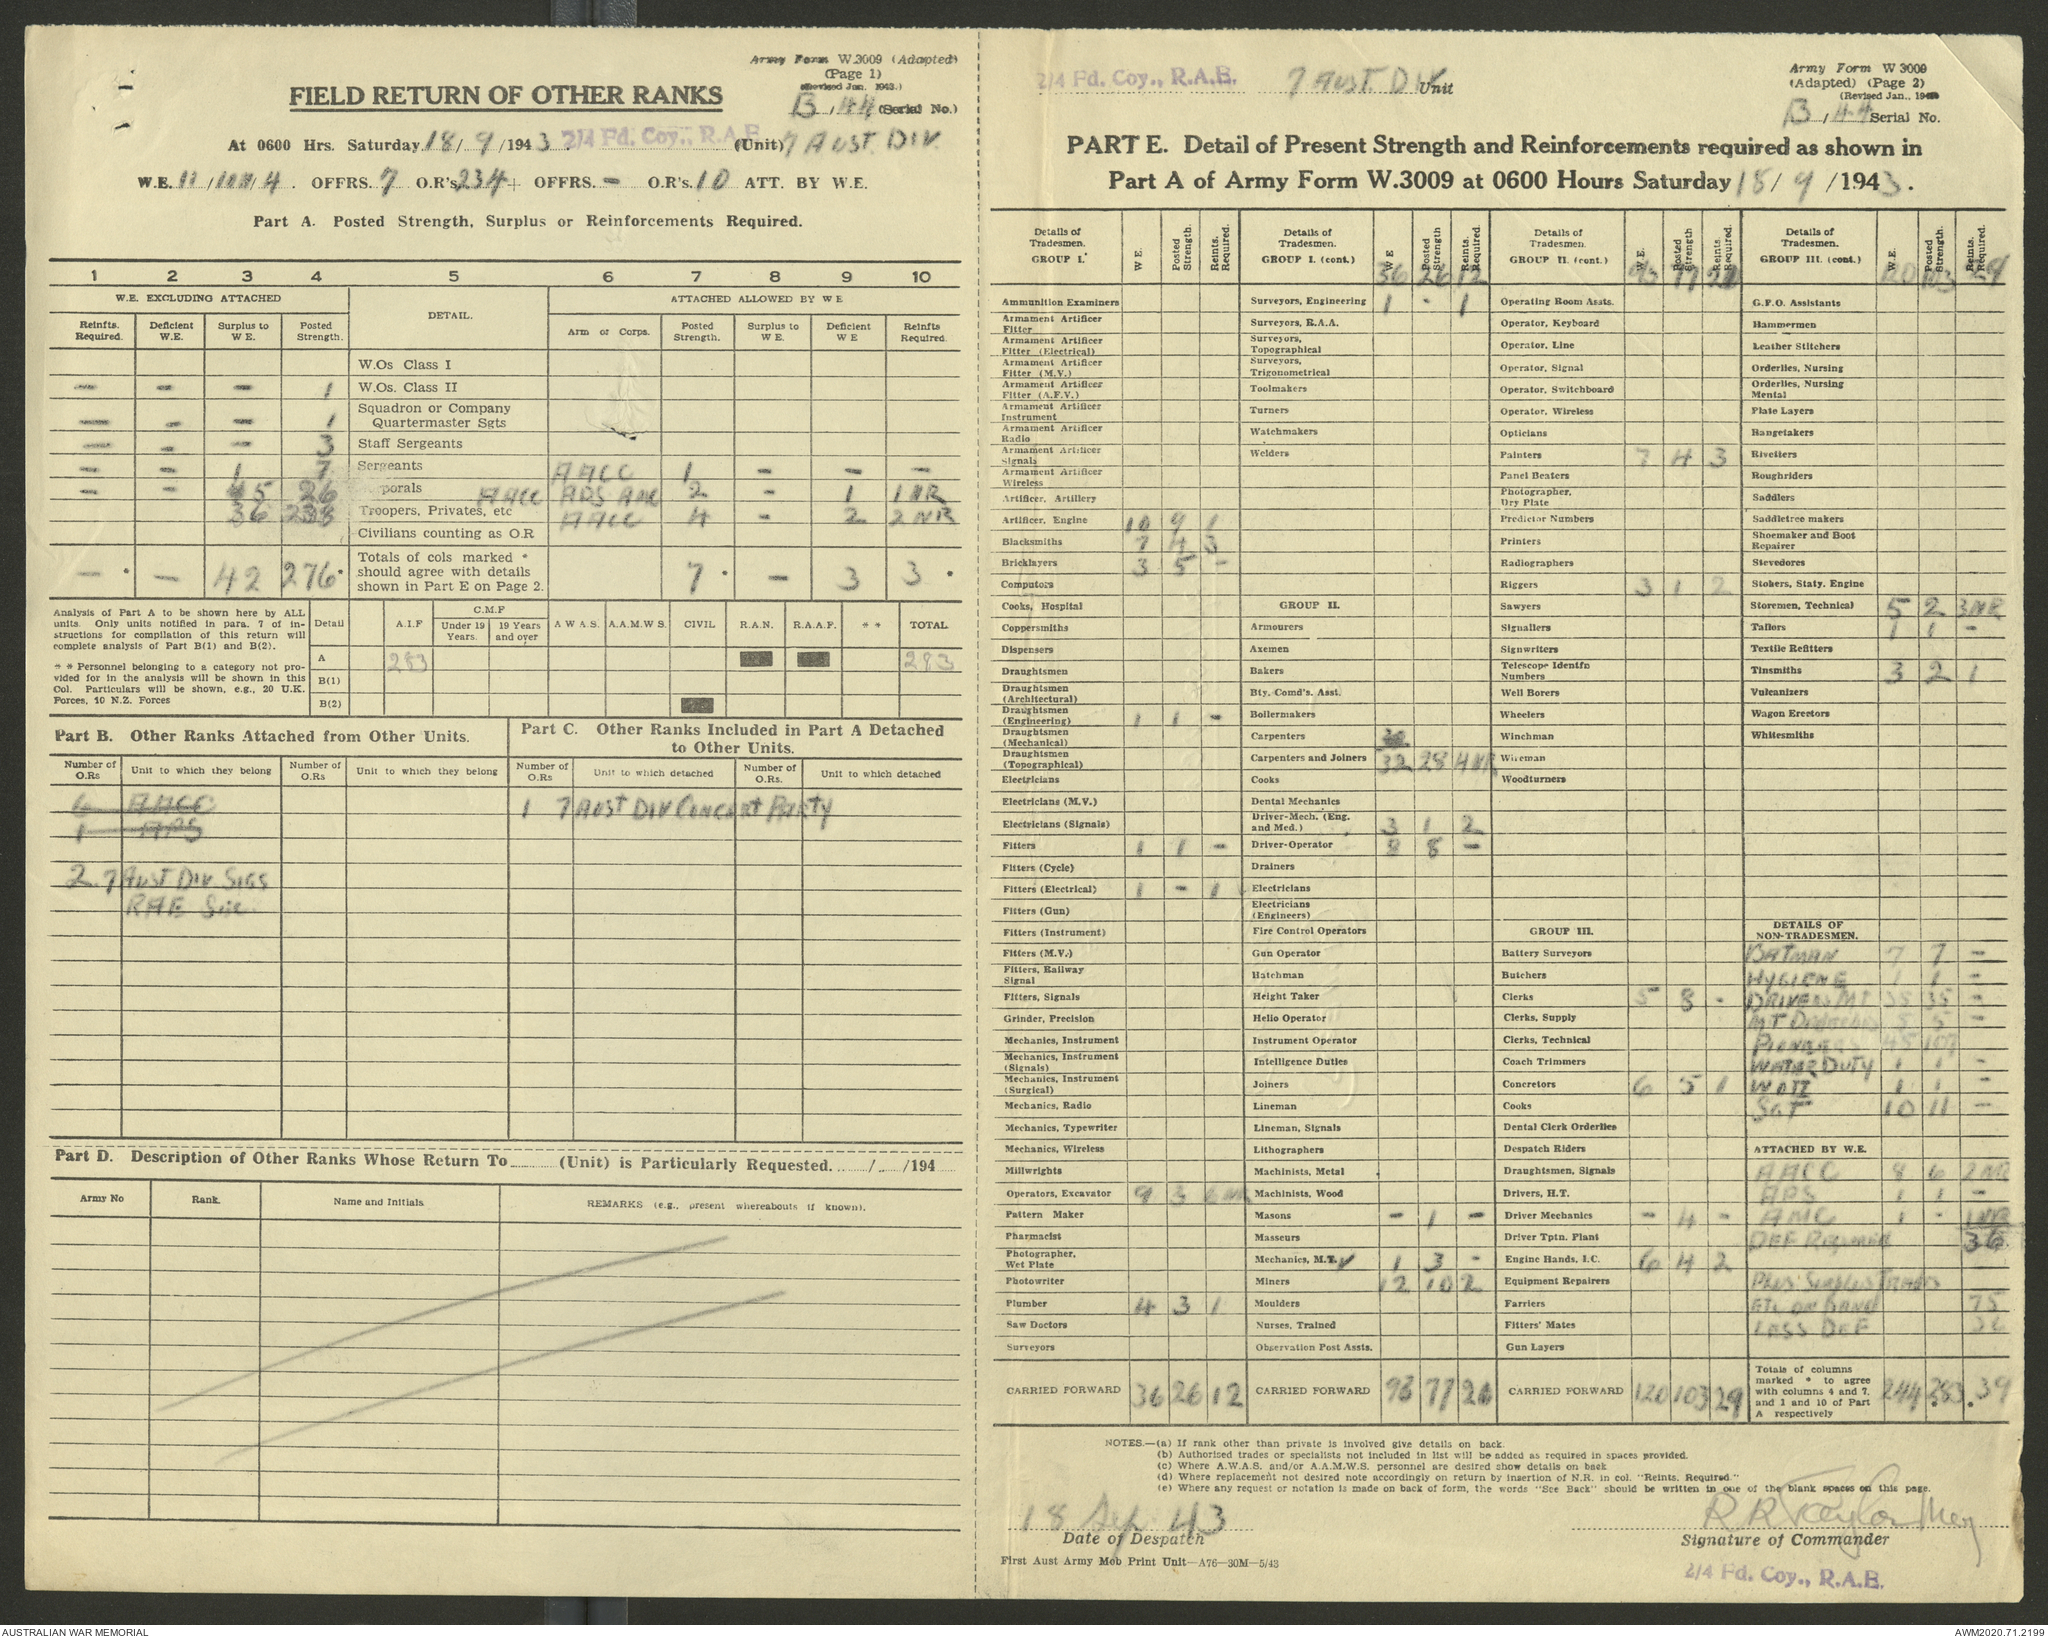 Army Form W.3009 (Adapted)
(Page 1)
(Revised Jan. 1943.)
B / 44 (Serial No.)
FIELD RETURN OF OTHER RANKS
At 0600 Hrs. Saturday 18/ 9 /1943. 2/4 Fd. Coy., R.A.E. (Unit) 7 AUST. DIV.
W.E. 11 / / 4. OFFRS. 7 O.R's 234 + OFFRS. – O.R's. 10 ATT. BY W.E.
Part A. Posted Strength, Surplus or Reinforcements Required.
1 2 3 4 5 6 7 8 9 10
W.E. EXCLUDING ATTACHED DETAIL. ATTACHED ALLOWED BY W E
Reinfts. Required. Deficient W.E. Surplus to W E. Posted Strength. Arm or Corps. Posted Strength. Surplus to W E. Deficient W E Reinfts Required.
W.Os Class I
– – – 1 W.Os. Class II
– – – 1 Squadron or Company Quartermaster Sgts
– – – 3 Staff Sergeants
– – 1 7 Sergeants AACC 1 – – –
– – 5 26 Corporals AACC APS AMC 2 – 1 1 NR
36 238 Troopers, Privates, etc AACC 4 – 2 2 NR
Civilians counting as O.R
– * – 42 276 * Totals of cols marked * should agree with details shown in Part E on Page 2. 7 * – 3 3 *
Analysis of Part A to be shown here by ALL units. Only units notified in para. 7 of instructions for compilation of this return will complete analysis of Part B(1) and B(2).
* * Personnel belonging to a category not provided for in the analysis will be shown in this Col. Particulars will be shown, e.g., 20 U.K. Forces, 10 N.Z. Forces
Detail A.I.F C.M.F Under 19 Years. 19 Years and over A W A S. A.A.M.W S. CIVIL R.A.N. R.A.A.F. * * TOTAL
A 283 283
B(1)
B(2)
Part B. Other Ranks Attached from Other Units.
Number of O.Rs Unit to which they belong Number of O.Rs Unit to which they belong
6 AACC
1 APS
2 7 AUST DIV SIGS
RAE Sec.
Part C. Other Ranks Included in Part A Detached to Other Units.
Number of O.Rs Unit to which detached Number of O.Rs. Unit to which detached
1 7 AUST DIV CONCERT PARTY
Part D. Description of Other Ranks Whose Return To (Unit) is Particularly Requested. / /194
Army No Rank. Name and Initials REMARKS (e.g., present whereabouts if known).
2/4 Fd. Coy., R.A.E. 7 AUST. DIV Unit
Army Form W 3009
(Adapted) (Page 2)
(Revised Jan., 1943)
B / 44 Serial No.
PART E. Detail of Present Strength and Reinforcements required as shown in
Part A of Army Form W.3009 at 0600 Hours Saturday 18/ 9 /1943.
Details of Tradesmen. GROUP I. W E. Posted Strength. Reints. Required.
Ammunition Examiners
Armament Artificer Fitter
Armament Artificer Fitter (Electrical)
Armament Artificer Fitter (M.V.)
Armament Artificer Fitter (A.F.V.)
Armament Artificer Instrument
Armament Artificer Radio
Armament Artificer Signals
Armament Artificer Wireless
Artificer, Artillery
Artificer, Engine 10 9 1
Blacksmiths 7 4 3
Bricklayers 3 5 –
Computors
Cooks, Hospital
Coppersmiths
Dispensers
Draughtsmen
Draughtsmen (Architectural)
Draughtsmen (Engineering) 1 1 –
Draughtsmen (Mechanical)
Draughtsmen (Topographical)
Electricians
Electricians (M.V.)
Electricians (Signals)
Fitters 1 1 –
Fitters (Cycle)
Fitters (Electrical) 1 – 1
Fitters (Gun)
Fitters (Instrument)
Fitters (M.V.)
Fitters, Railway Signal
Fitters, Signals
Grinder, Precision
Mechanics, Instrument
Mechanics, Instrument (Signals)
Mechanics, Instrument (Surgical)
Mechanics, Radio
Mechanics, Typewriter
Mechanics, Wireless
Millwrights
Operators, Excavator 9 3 6 NR
Pattern Maker
Pharmacist
Photographer, Wet Plate
Photowriter
Plumber 4 3 1
Saw Doctors
Surveyors
CARRIED FORWARD 36 26 12
Details of Tradesmen. GROUP I. (cont.) W E Posted Strength Reints. Required.
36 26 12
Surveyors, Engineering 1 - 1
Surveyors, R.A.A.
Surveyors, Topographical
Surveyors, Trigonometrical
Toolmakers
Turners
Watchmakers
Welders
GROUP II.
Armourers
Axemen
Bakers
Bty. Comd's. Asst.
Boilermakers
Carpenters
Carpenters and Joiners 32 28 4 NR
Cooks
Dental Mechanics
Driver-Mech. (Eng. and Med.) 3 1 2
Driver-Operator 8 8 –
Drainers
Electricians
Electricians (Engineers)
Fire Control Operators
Gun Operator
Hatchman
Height Taker
Helio Operator
Instrument Operator
Intelligence Duties
Joiners
Lineman
Lineman, Signals
Lithographers
Machinists, Metal
Machinists, Wood
Masons – 1 –
Masseurs
Mechanics, M.T. ✓ 1 3 -
Miners 12 10 2
Moulders
Nurses, Trained
Observation Post Assts.
CARRIED FORWARD 93 77 21
Details of Tradesmen. GROUP II. (cont.) W.E. Posted Strength Reints. Required.
93 77 21
Operating Room Assts.
Operator, Keyboard
Operator, Line
Operator, Signal
Operator, Switchboard
Operator, Wireless
Opticians
Painters 7 4 3
Panel Beaters
Photographer, Dry Plate
Predictor Numbers
Printers
Radiographers
Riggers 3 1 2
Sawyers
Signallers
Signwriters
Telescope Identfn Numbers
Well Borers
Wheelers
Winchman
Wireman
Woodturners
GROUP III.
Battery Surveyors
Butchers
Clerks 5 8 -
Clerks, Supply
Clerks, Technical
Coach Trimmers
Concretors 6 5 1
Cooks
Dental Clerk Orderlies
Despatch Riders
Draughtsmen, Signals
Drivers, H.T.
Driver Mechanics – 4 –
Driver Tptn. Plant
Engine Hands, I.C. 6 4 2
Equipment Repairers
Farriers
Fitters' Mates
Gun Layers
CARRIED FORWARD 120 103 29
Details of Tradesmen. GROUP III. (cont.) W.E. Posted Strength. Reints. Required.
120 103 29
G.F.O. Assistants
Hammermen
Leather Stitchers
Orderlies, Nursing
Orderlies, Nursing Mental
Plate Layers
Rangetakers
Rivetters
Roughriders
Saddlers
Saddletree makers
Shoemaker and Boot Repairer
Stevedores
Stokers, Staty. Engine
Storemen, Technical 5 2 3 NR
Tailors 1 1 –
Textile Refitters
Tinsmiths 3 2 1
Vulcanizers
Wagon Erectors
Whitesmiths
DETAILS OF NON-TRADESMEN.
BATMAN 7 7 –
HYGIENE 1 1 –
DRIVERS MT 35 35 –
MT 5 –
PIONEERS 45 107
WATER DUTY 1 1 –
WO II 1 1 –
SGT 10 11 –
ATTACHED BY W.E.
AACC 8 6 2 NR
APS 1 1 –
AMC 1 - 1 NR
DEF Required 36
PLUS SURPLUS TRADES
ETC ON HAND 75
LESS DEF 36
Totals of columns marked * to agree with columns 4 and 7. and 1 and 10 of Part A respectively 244 283 * 39
NOTES.—(a) If rank other than private is involved give details on back.
(b) Authorised trades or specialists not included in list will be added as required in spaces provided.
(c) Where A.W.A.S. and/or A.A.M.W.S. personnel are desired show details on back
(d) Where replacement not desired note accordingly on return by insertion of N.R. in col. "Reints. Required."
(e) Where any request or notation is made on back of form, the words "See Back" should be written in one of the blank spaces on this page.
18 Sep 43
Date of Despatch
R R Taylor Maj
Signature of Commander
First Aust Army Mob Print Unit—A76—30M—5/43
2/4 Fd. Coy., R.A.E.
AUSTRALIAN WAR MEMORIAL
AWM2020.71.2199